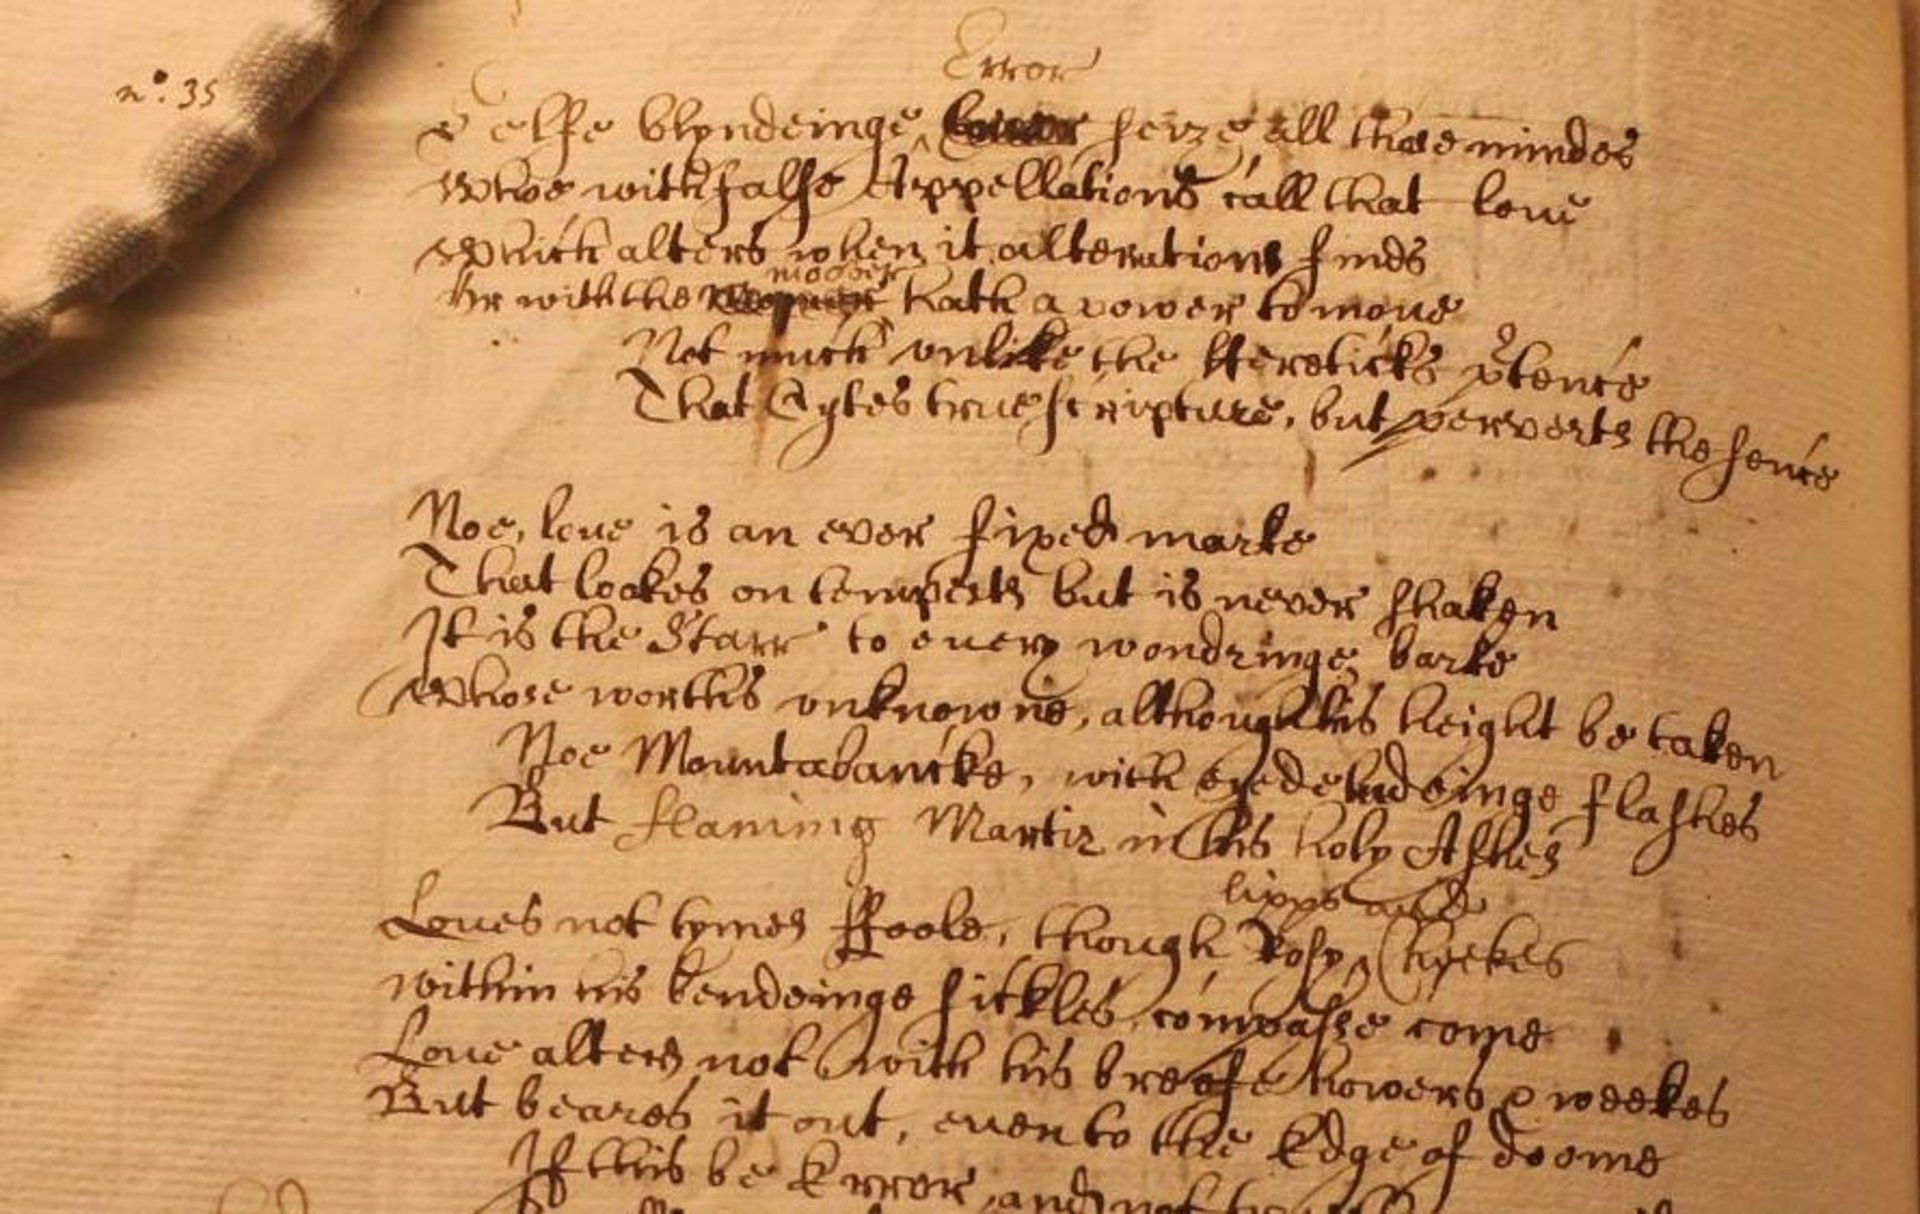 n°. 35
Error
Selfe blyndeinge seize all those mindes
Whoe with false Appellations call that loue
Which alters when it alterations finds
moover
Or with the hath a power to moue
Not much vnlike the Hereticks prtence
That Cytes true scripture, but perverts the sence
Noe, loue is an ever fixed marke
That lookes on tempests but is never shaken
It is the Starr to euery wondringe barke
Whose worths vnknowne, although his height be taken
Noe Mountabancke, with eyedeludeinge flashes
But flaming Martir in his holy Ashes
lipps and
Loues not tymes ffoole, though Rosy Cheekes
within his bendeinge sickles compasse come
Loue alters not with his breefe howers & weekes
But beares it out, euen to the Edge of doome
If this be Error, and not